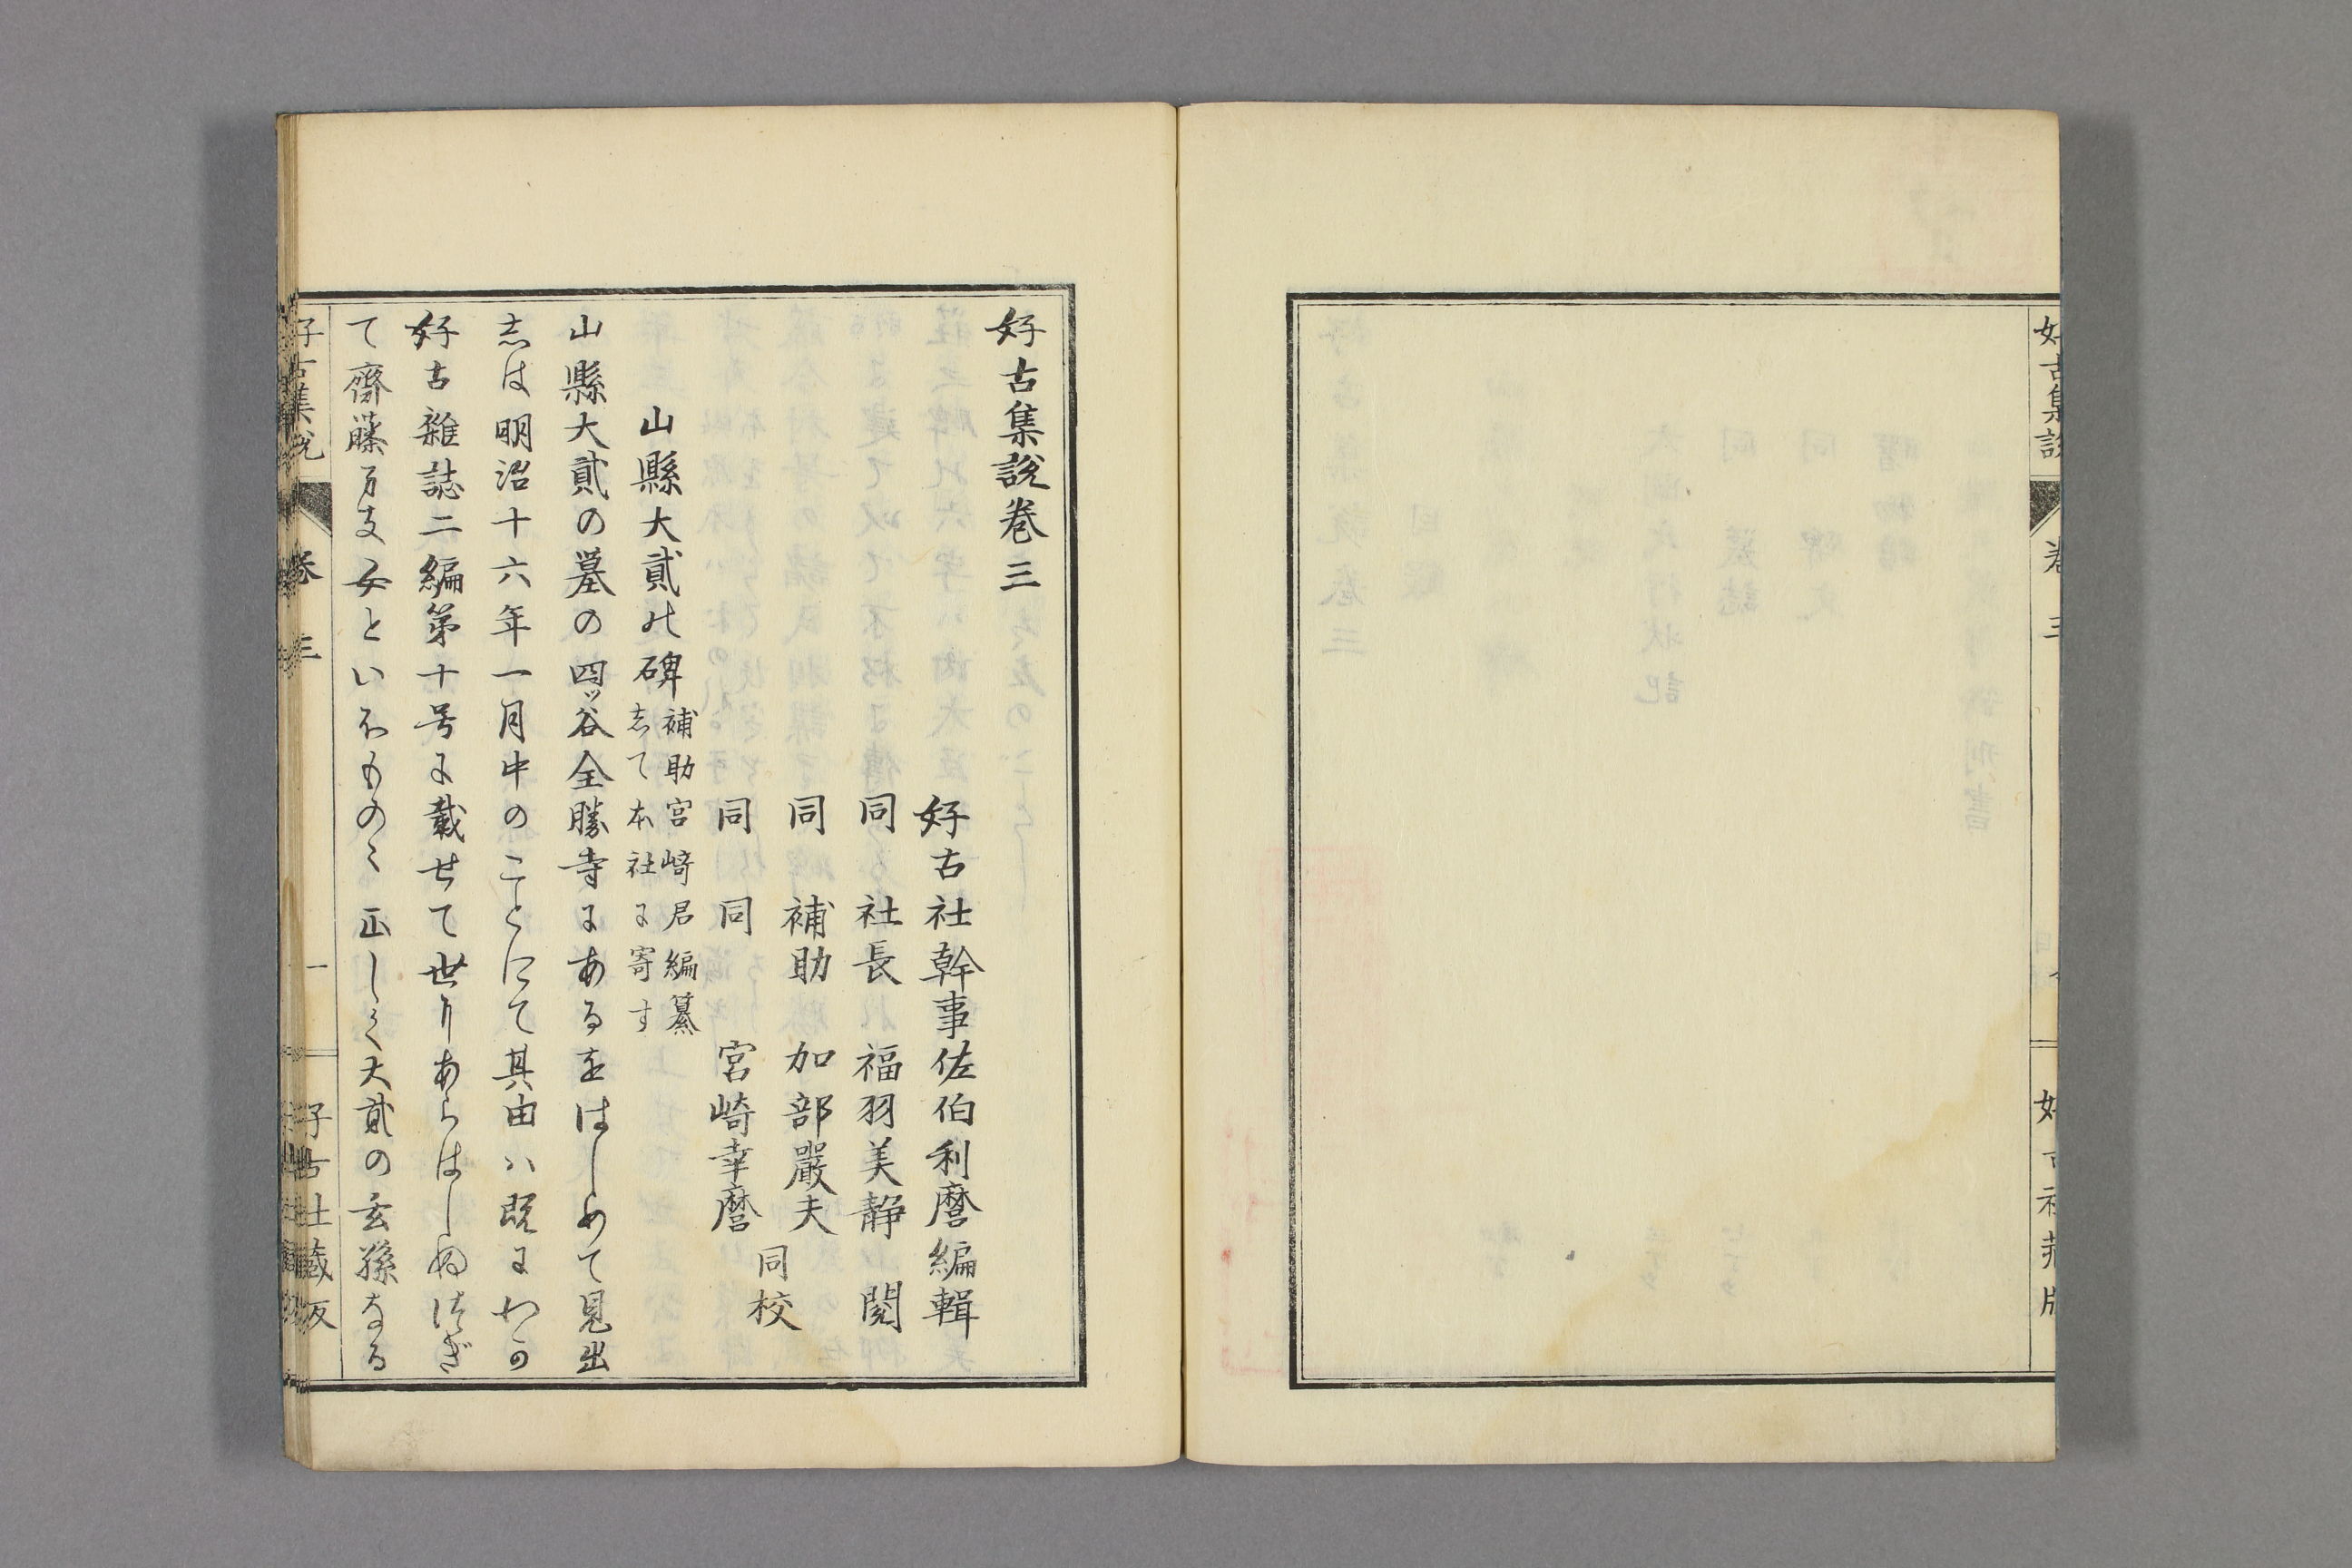 好古集説
卷三
好古社蔵版
好古集說卷三
好古社幹事佐伯利麿編輯
同 社長 福羽美静 閲
同 補助 加部嚴夫
同 同 宮崎幸麿
同校
山縣大貳の碑
補助宮﨑君編纂
志て本社に寄す
山縣大貳の墓の四ッ谷全勝寺にあるをはしめて見出
志は明治十六年一月中のことにて其由ハ既にわか
好古雜誌二編第十号に載せて世にあらはしぬ
て齋藤 女といふもの 正しく大貳の玄孫なる
好古集説
卷三
一
好古社蔵版